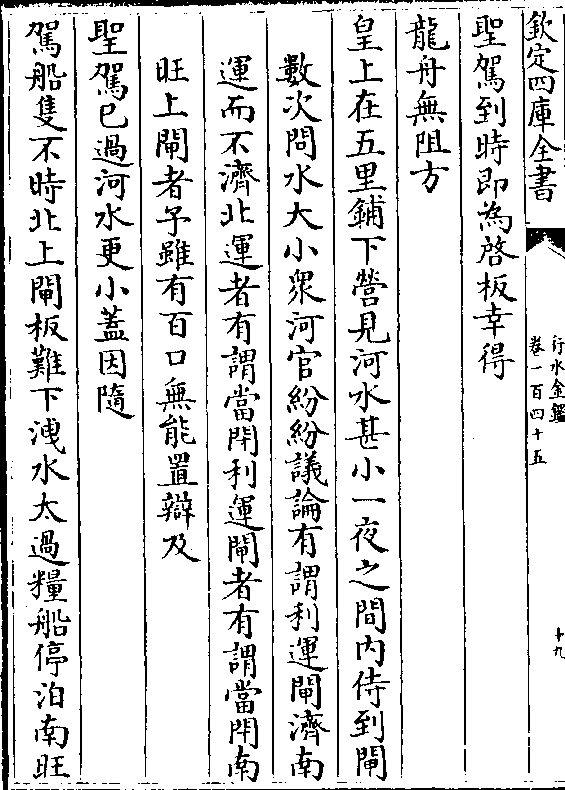 欽定四庫全書
行水金鑑
卷一百四十五
十九
聖駕到時即為啓板幸得
龍舟無阻方
皇上在五里鋪下營見河水甚小一夜之間内侍到閘
數次問水大小衆河官紛紛議論有謂利運閘濟南
運而不濟北運者有謂當閉利運閘者有謂當閉南
旺上閘者予雖有百口無能置辯及
聖駕已過河水更小蓋因隨
駕船隻不時北上閘板難下洩水太過糧船停泊南旺